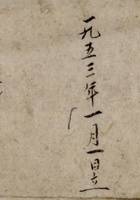 一九五三年一月一日立